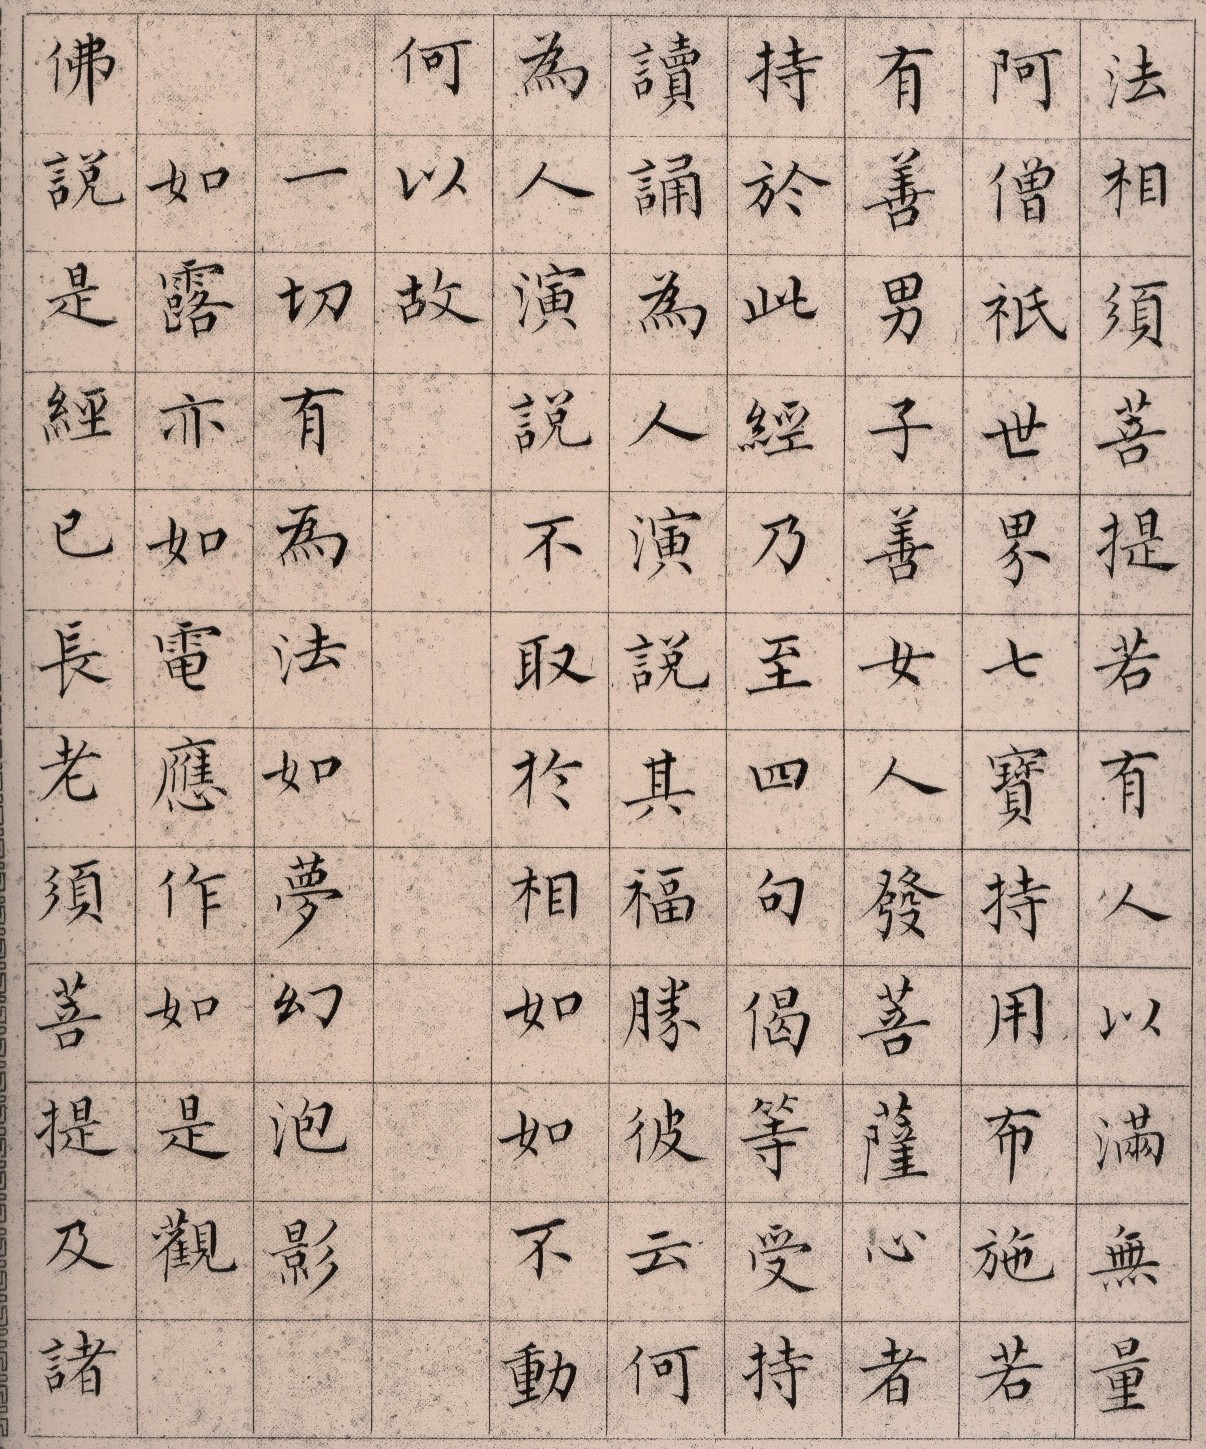 法相須菩提若有人以滿無量
阿僧祇世界七寶持用布施若
有善男子善女人發菩薩心者
持於此經乃至四句偈等受持
讀誦為人演說其福勝彼云何
為人演說不取於相如如不動
何以故
一切有為法如夢幻泡影
如露亦如電應作如是觀
佛說是經已長老須菩提及諸